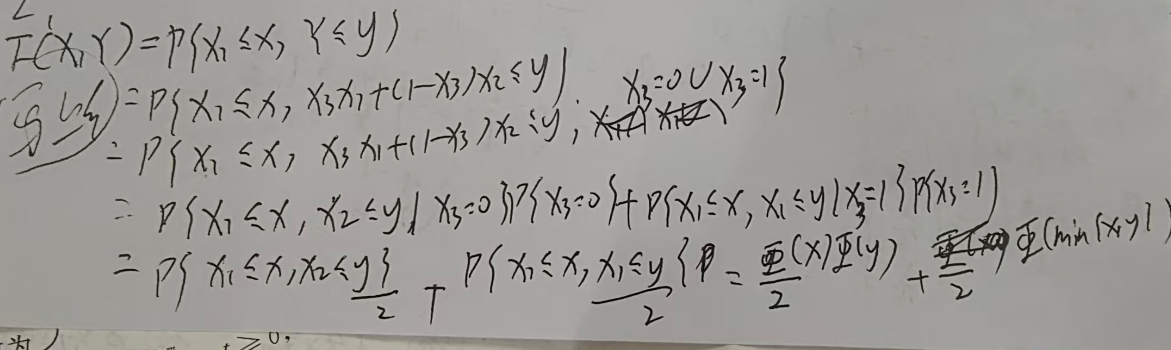 F(X,Y)=P{X₁≤x, Y≤y}
=P{X₁≤x, X₃X₁+(1-X₃)X₂≤y}
=P{X₁≤x, X₃X₁+(1-X₃)X₂≤y, X₃=0∪X₃=1}
=P{X₁≤x, X₂≤y|X₃=0}P{X₃=0}+P{X₁≤x, X₁≤y|X₃=1}P{X₃=1}
=P{X₁≤x, X₂≤y}/2+P{X₁≤x, X₁≤y}/2=Φ(x)Φ(y)/2+Φ(min{x,y})/2
为 ≥0,